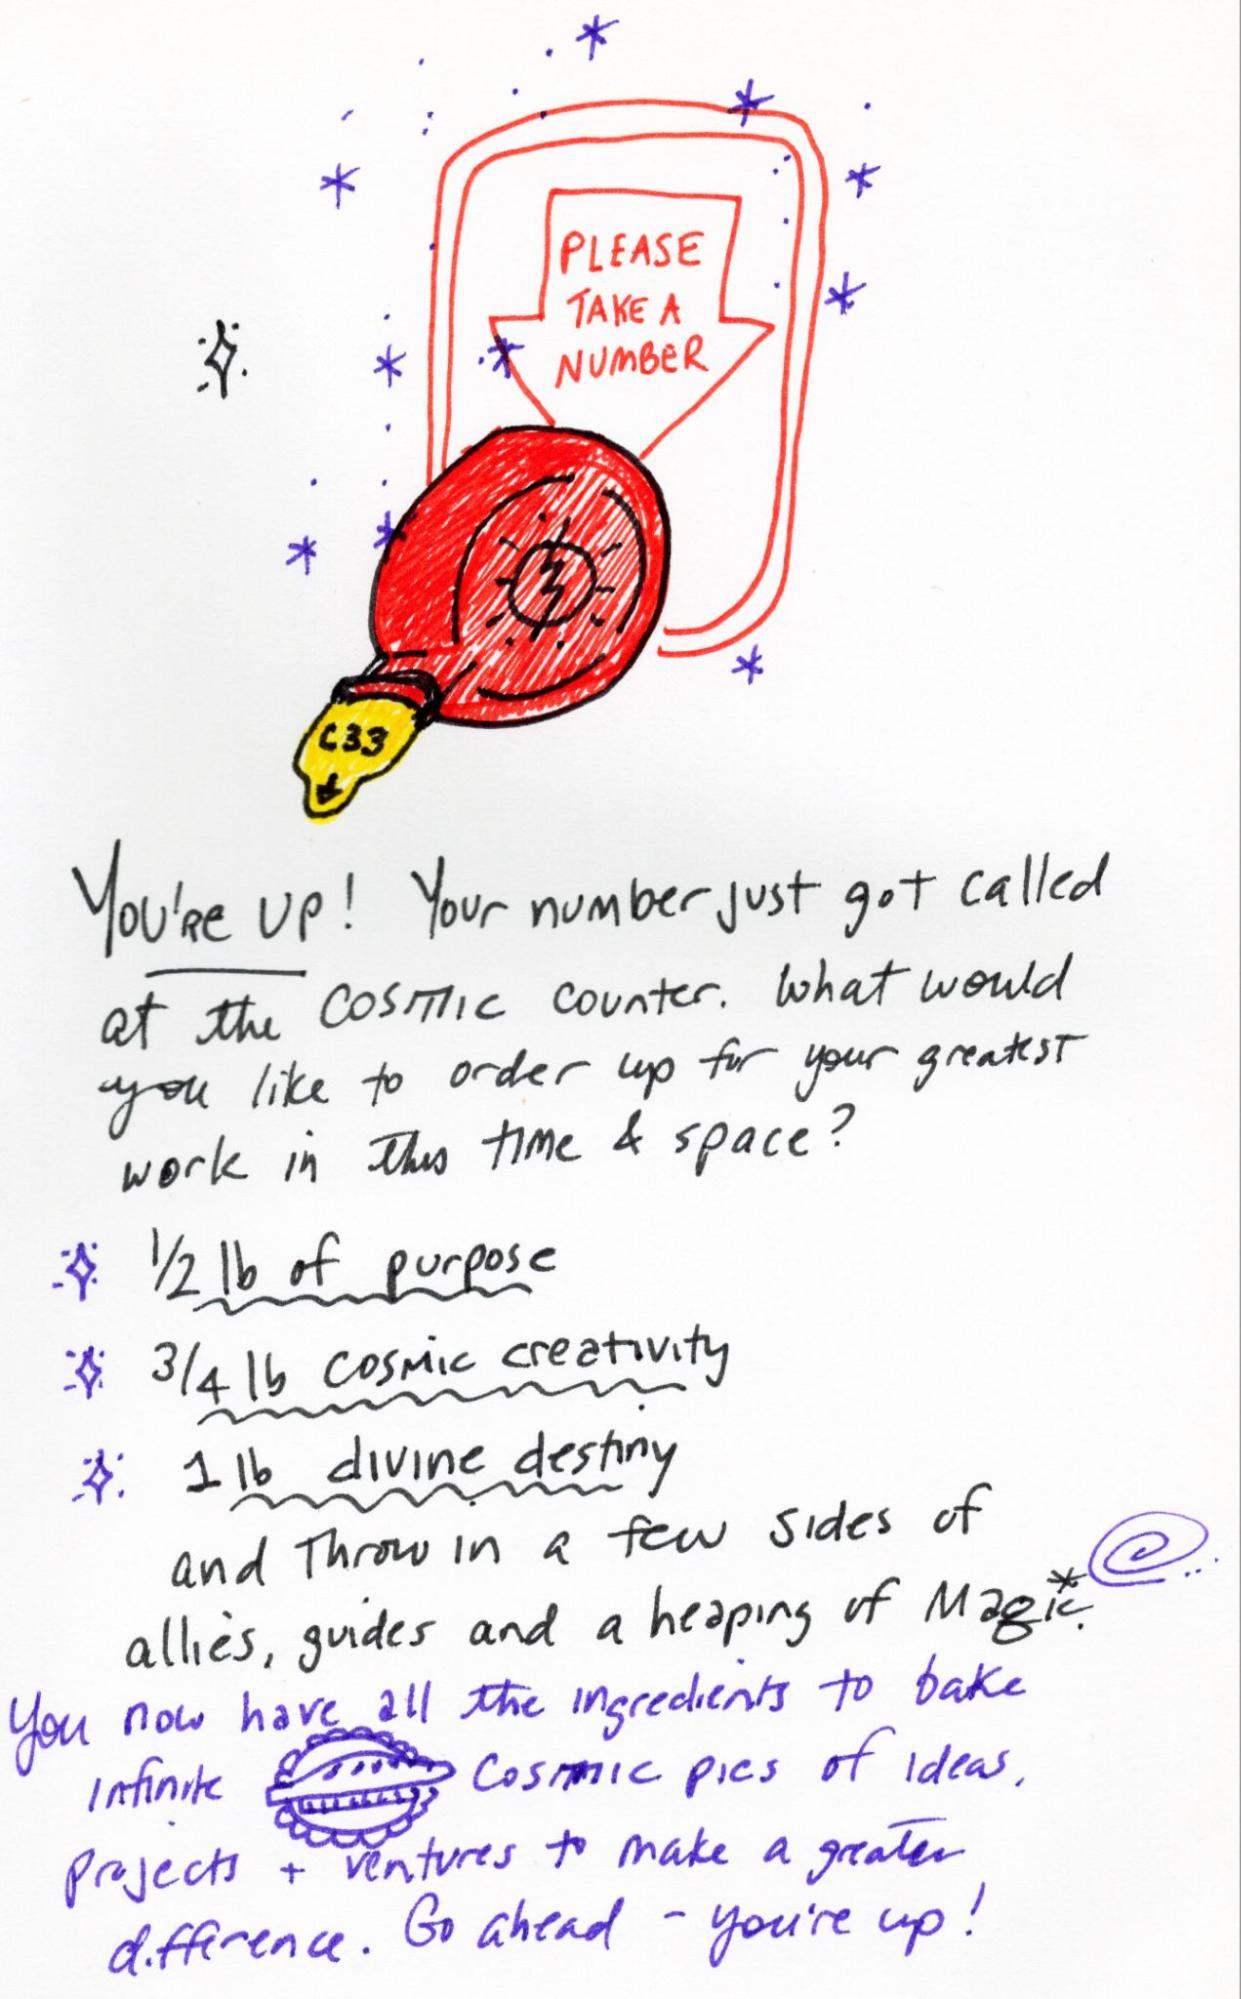 PLEASE
TAKE A
NUMBER
C33
You're up! Your number just got called
at the cosmic counter. What would
you like to order up for your greatest
work in this time & space?
1/2 lb of purpose
3/4 lb cosmic creativity
1 lb divine destiny
and throw in a few sides of
allies, guides and a heaping of Magic.
You now have all the ingredients to bake
infinite cosmic pies of ideas,
projects + ventures to make a greater
difference. Go ahead - you're up!